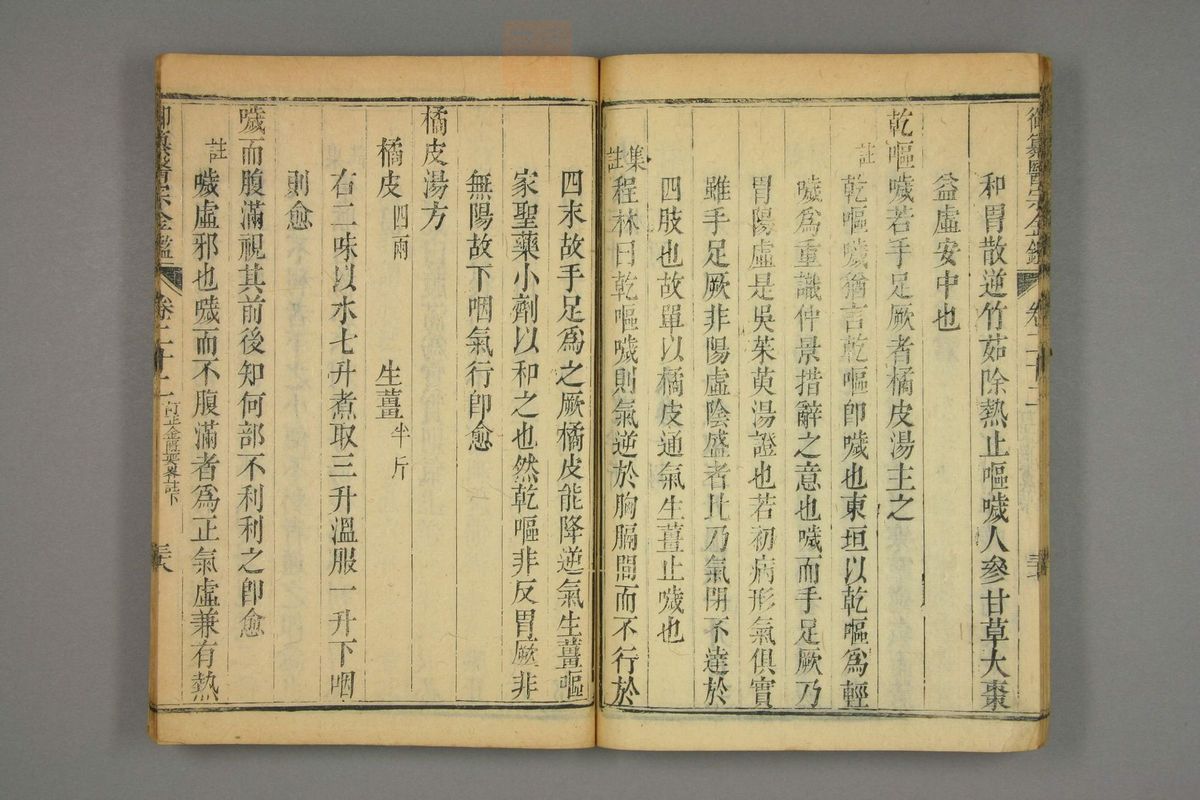 御纂醫宗金鑑 卷二十二
和胃散逆竹茹除熱止嘔噦人參甘草大棗
益虛安中也
乾嘔噦若手足厥者橘皮湯主之
註 乾嘔噦猶言乾嘔卽噦也東垣以乾嘔爲輕
噦爲重識仲景措辭之意也噦而手足厥乃
胃陽虛是吳茱萸湯證也若初病形氣俱實
雖手足厥非陽虛陰盛者比乃氣閉不達於
四肢也故單以橘皮通氣生薑止噦也
集註 程林曰乾嘔噦則氣逆於胸膈間而不行於
四末故手足爲之厥橘皮能降逆氣生薑嘔
家聖藥小劑以和之也然乾嘔非反胃厥非
無陽故下咽氣行卽愈
橘皮湯方
橘皮四兩 生薑半斤
右二味以水七升煮取三升溫服一升下咽
則愈
噦而腹滿視其前後知何部不利利之卽愈
註 噦虛邪也噦而不腹滿者爲正氣虛兼有熱
御纂醫宗金鑑 卷二十二 訂正金匱要畧註下 三六